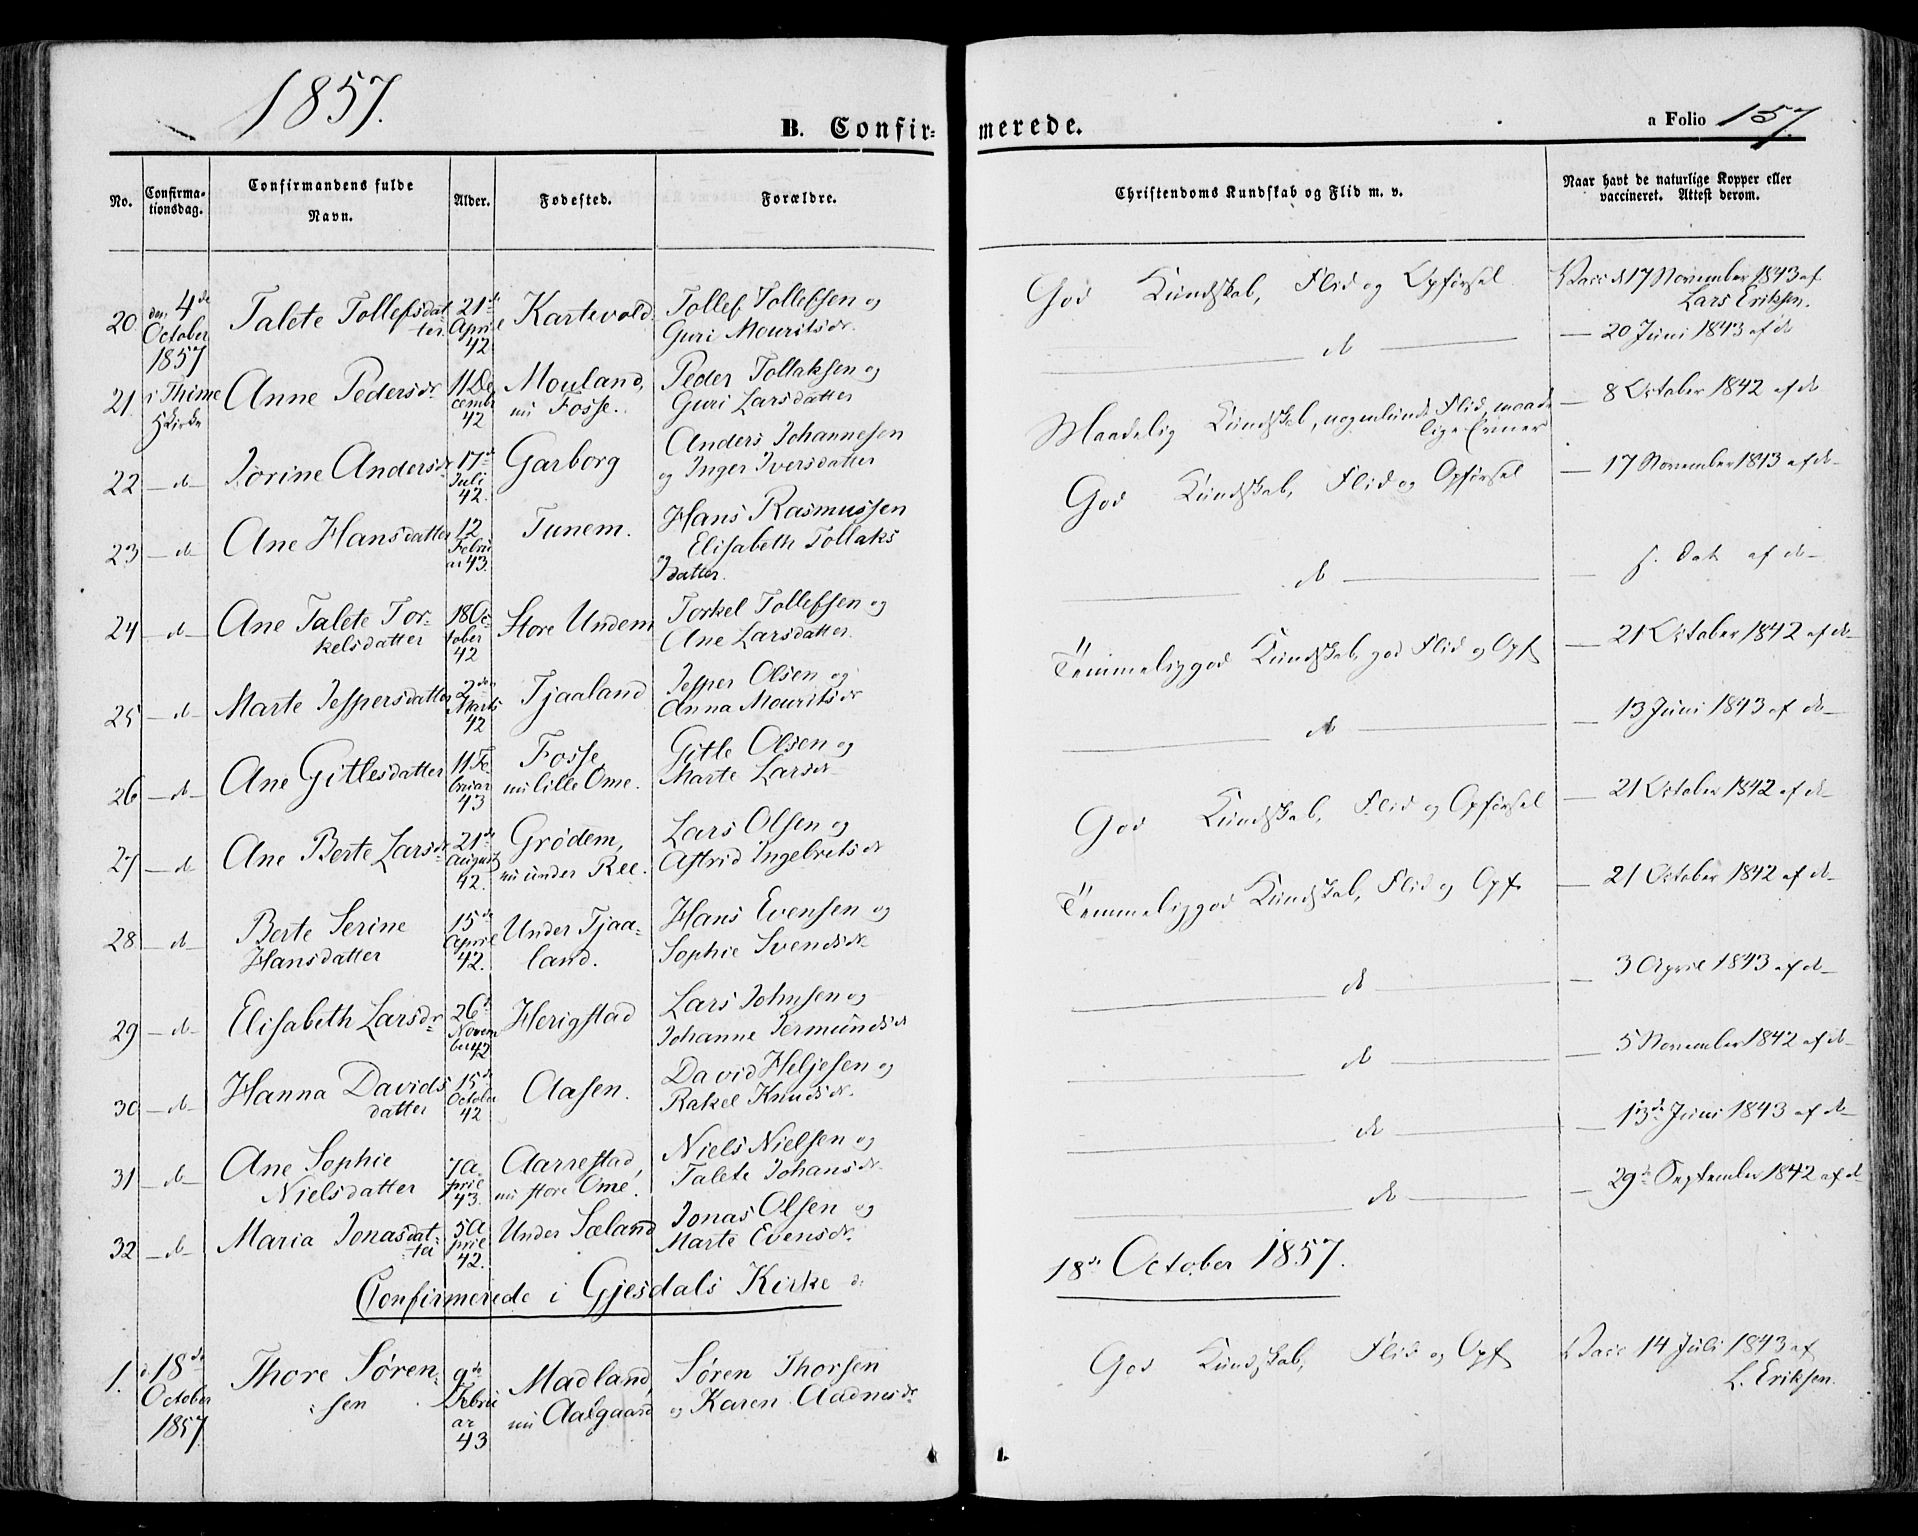 1857.
B. Confir-
merede.
a Folio 157.
No.
Confirma-
tionsdag.
Confirmandens fulde
Navn.
Alder.
Fødested.
Forældre.
Christendoms Kundskab og Flid m. v.
Naar havt de naturlige Kopper eller
vaccineret. Attest derom.
20 den 4de October 1857 i Thime Kirke Talete Tollefsdatter 21de April 42 Kartevold Tollef Tollefsen og Guri Mouritsdr. God Kundskab, Flid og Opførsel Vacc d 17 November 1843 af Lars Eriksen.
21. Anne Pedersdr. 11 December 42 Mouland, nu Fosse. Peder Tollaksen og Guri Larsdatter do 20 Juni 1843 af do
22 do Jorine Andersdr 17de Juli 42. Garborg Anders Johannesen og Inger Iversdatter Maadelig Kundskab, nogenlunde Flid, maadelige Evner 8 October 1842 af do
23 do Ane Hansdatter 12 Februar 43. Tunem. Hans Rasmussen og Elisabeth Tollaksdatter. God Kundskab, Flid og Opførsel 17 November 1843 af do
24 do Ane Talete Torkelsdatter 18 October 42 Store Undem Torkel Tollefsen og Ane Larsdatter do s. Dat af do
25 do Marte Jespersdatter 2den Marts 42 Tjaaland Jesper Olsen og Anna Mouritsdr Temmelig god Kundskab, god Flid og Opf 21 October 1842 af do
26 do Ane Gitlesdatter 11 Februar 43 Fosse, nu lille Ome. Gitle Olsen og Marte Larsdr do 13 Juni 1843 af do
27 do Ane Berte Larsdr. 21de August 42. Grødem, nu under Ree. Lars Olsen og Astrid Ingebretsdr God Kundskab, Flid og Opførsel 21 October 1842 af do
28 do Berte Serine Hansdatter 15de April 42. Under Tjaaland. Hans Evensen og Sophie Svendsdr Temmelig god Kundskab, Flid og Opf. 21 October 1842 af do
29 do Elisabeth Larsdr. 26de November 42 Herigstad Lars Johnsen og Johanne Germundsdr do 3 April 1843 af do
30 do Hanna Davidsdatter 15de October 42 Aasen. David Heljesen og Rakel Knudsdr. do 5 November 1842 af do
31 do Ane Sophie Nielsdatter 7 April 43. Aarrestad, nu store Ome. Niels Nielsen og Talete Johansdr. do 13de Juni 1843 af do
32 do Maria Jonasdatter 5 April 42. Under Sæland Jonas Olsen og Marte Evensdr. do 29de September 1842 af do
Confirmerede i Gjesdals Kirke d:
18de October 1857.
1. d 18de October 1857. Thore Sørensen 9de Februar 43 Madland, nu Aalgaard Søren Thorsen og Karen Aadnesdr God Kundskab, Flid og Opf Vacc 14 Juli 1843 af L. Eriksen.